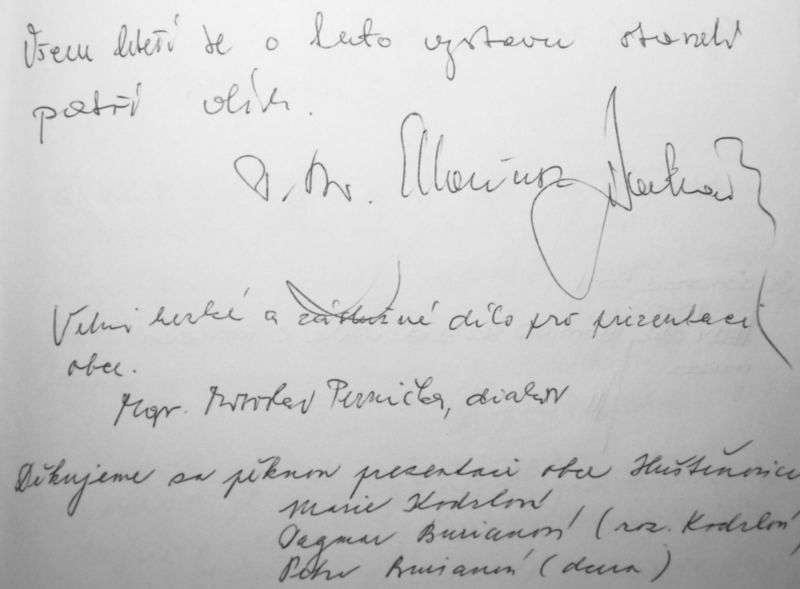 Všem kteří se o tuto výstavu starali
patří dík.
P. Dr.
Velmi hezké a záslužné dílo pro prezentaci
obce.
Mgr. Miroslav Pernička, diakon
Děkujeme za pěknou prezentaci obce Huštěnovice
Marie Kodrlová
Dagmar Burianová (roz. Kodrlová)
Petra Burianová (dcera)